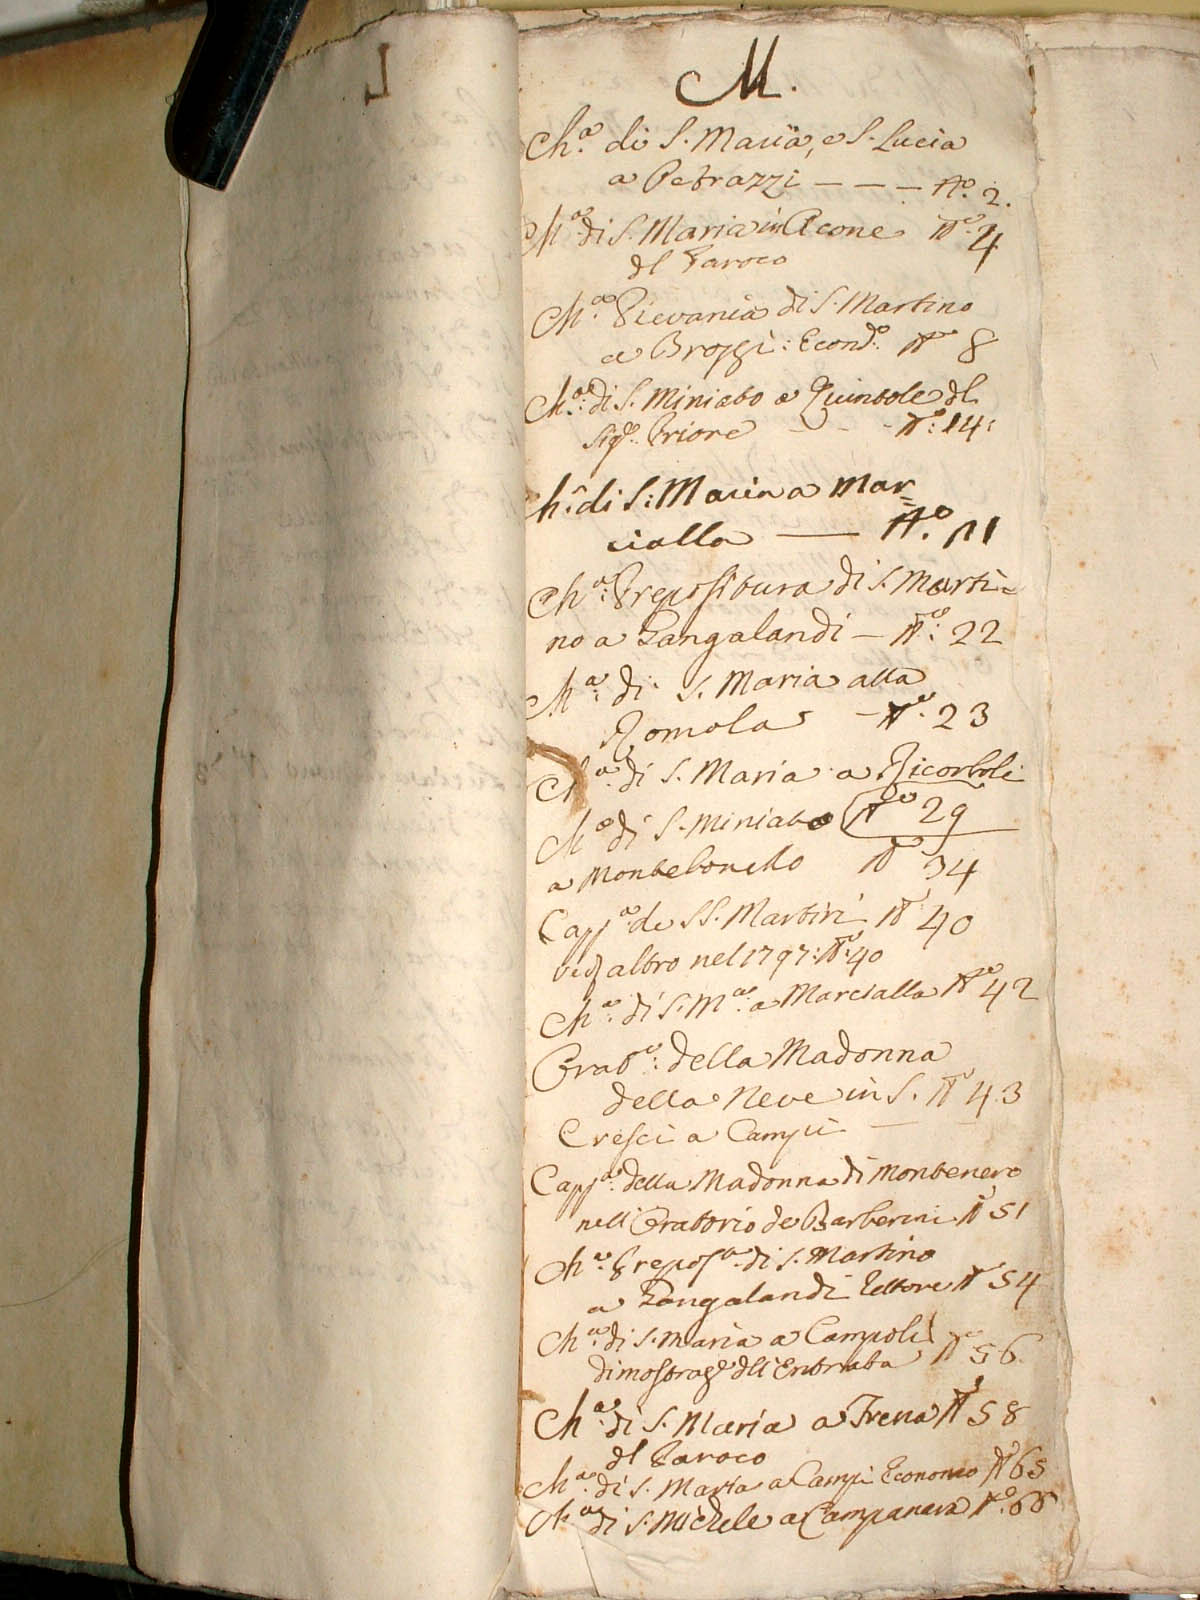 L
M.
Ch.a di S. Maria, e S. Lucia
a Petrazzi — — — No. 2.
Ch.a di S. Maria in Acone No. 4
dl Paroco
Ch.a Pievania di S. Martino
a Brozzi: Econo. No 8
Ch.a: di S. Miniato a Quintole dl
Sigr. Priore - - - No: 14:
Ch.a di S: Maria a Mar=
cialla — No. 21
Ch.a: Prepositura di S. Marti=
no a Gangalandi — No: 22
Ch.a: di S. Maria alla
Romola - No. 23
Ch.a di S. Maria a Ricorboli
No 29
Ch.a di S. Miniato
a Montebonello No 34
Capp.a de SS. Martiri No 40
altro nel 1797: No: 40
Ch.a: di S. M.a: a Marcialla No 42
Orat.o: della Madonna
della Neve in S. No 43
Cresci a Campi —
Capp.a: della Madonna di Montenero
nell'Oratorio de Barberini No 51
Ch.a: Prepos.a di S. Martino
a Gangalandi Rettore No 54
Ch.a: di S. Maria a Campoli
dell'Entrata No 56
Ch.a: di S. Maria a Frena No 58
dl Paroco
Ch.a: di S. Maria a Campi Economo No 65
Ch.a di S. Michele a Campanara No. 66